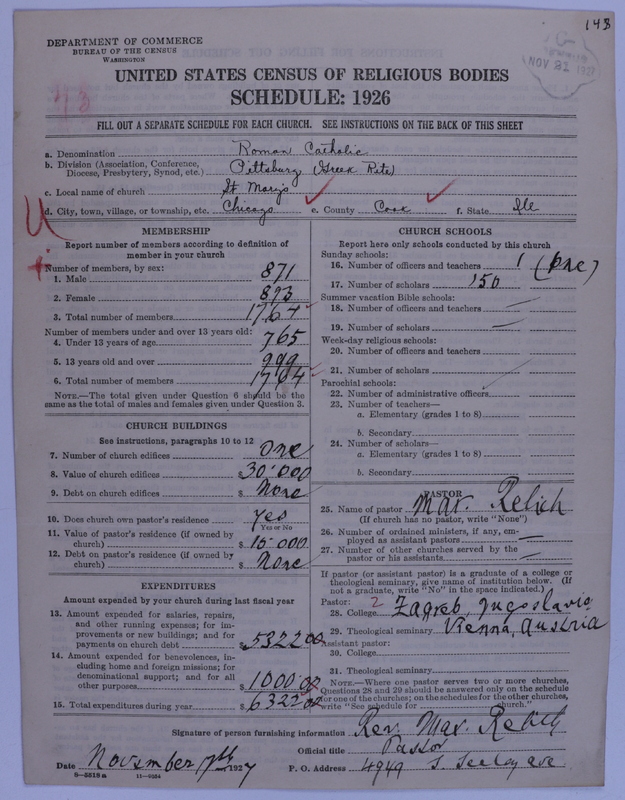 143
DEPARTMENT OF COMMERCE
BUREAU OF THE CENSUS
WASHINGTON
NOV 21 1927
UNITED STATES CENSUS OF RELIGIOUS BODIES
SCHEDULE: 1926
FILL OUT A SEPARATE SCHEDULE FOR EACH CHURCH. SEE INSTRUCTIONS ON THE BACK OF THIS SHEET
a. Denomination Roman Catholic
b. Division (Association, Conference, Diocese, Presbytery, Synod, etc.) Pittsburg (Greek Rite)
c. Local name of church St Mary's
d. City, town, village, or township, etc. Chicago e. County Cook f. State Ill
MEMBERSHIP
Report number of members according to definition of
member in your church
Number of members, by sex:
1. Male 871
2. Female 893
3. Total number of members 1764
Number of members under and over 13 years old:
4. Under 13 years of age 765
5. 13 years old and over 999
6. Total number of members 1764
NOTE.—The total given under Question 6 should be the
same as the total of males and females given under Question 3.
CHURCH BUILDINGS
See instructions, paragraphs 10 to 12
7. Number of church edifices One
8. Value of church edifices $30'000
9. Debt on church edifices $ None
10. Does church own pastor's residence Yes
Yes or No
11. Value of pastor's residence (if owned by
church) $ 15.000
12. Debt on pastor's residence (if owned by
church) $ None
EXPENDITURES
Amount expended by your church during last fiscal year
13. Amount expended for salaries, repairs,
and other running expenses; for im-
provements or new buildings; and for
payments on church debt $ 5322 00
14. Amount expended for benevolences, in-
cluding home and foreign missions; for
denominational support; and for all
other purposes $ 1000 00
15. Total expenditures during year $ 6322 00
CHURCH SCHOOLS
Report here only schools conducted by this church
Sunday schools:
16. Number of officers and teachers 1 (One)
17. Number of scholars 150
Summer vacation Bible schools:
18. Number of officers and teachers —
19. Number of scholars —
Week-day religious schools:
20. Number of officers and teachers
21. Number of scholars
Parochial schools:
22. Number of administrative officers
23. Number of teachers—
a. Elementary (grades 1 to 8)
b. Secondary
24. Number of scholars—
a. Elementary (grades 1 to 8)
b. Secondary
PASTOR
25. Name of pastor Max. Relich
(If church has no pastor, write "None")
26. Number of ordained ministers, if any, em-
ployed as assistant pastors —
27. Number of other churches served by the
pastor or his assistants —
If pastor (or assistant pastor) is a graduate of a college or
theological seminary, give name of institution below. (If
not a graduate, write "No" in the space indicated.)
Pastor: 2
28. College Zagreb, Jugoslavia
29. Theological seminary Vienna, Austria
Assistant pastor:
30. College
31. Theological seminary
NOTE.—Where one pastor serves two or more churches,
Questions 28 and 29 should be answered only on the schedule
for one of the churches; on the schedules for the other churches,
write "See schedule for church."
Signature of person furnishing information Rev. Max. Relich
Official title Pastor
Date November 7th, 1927 P. O. Address 4949 S. Seeley ave
8-5518a 11-8054